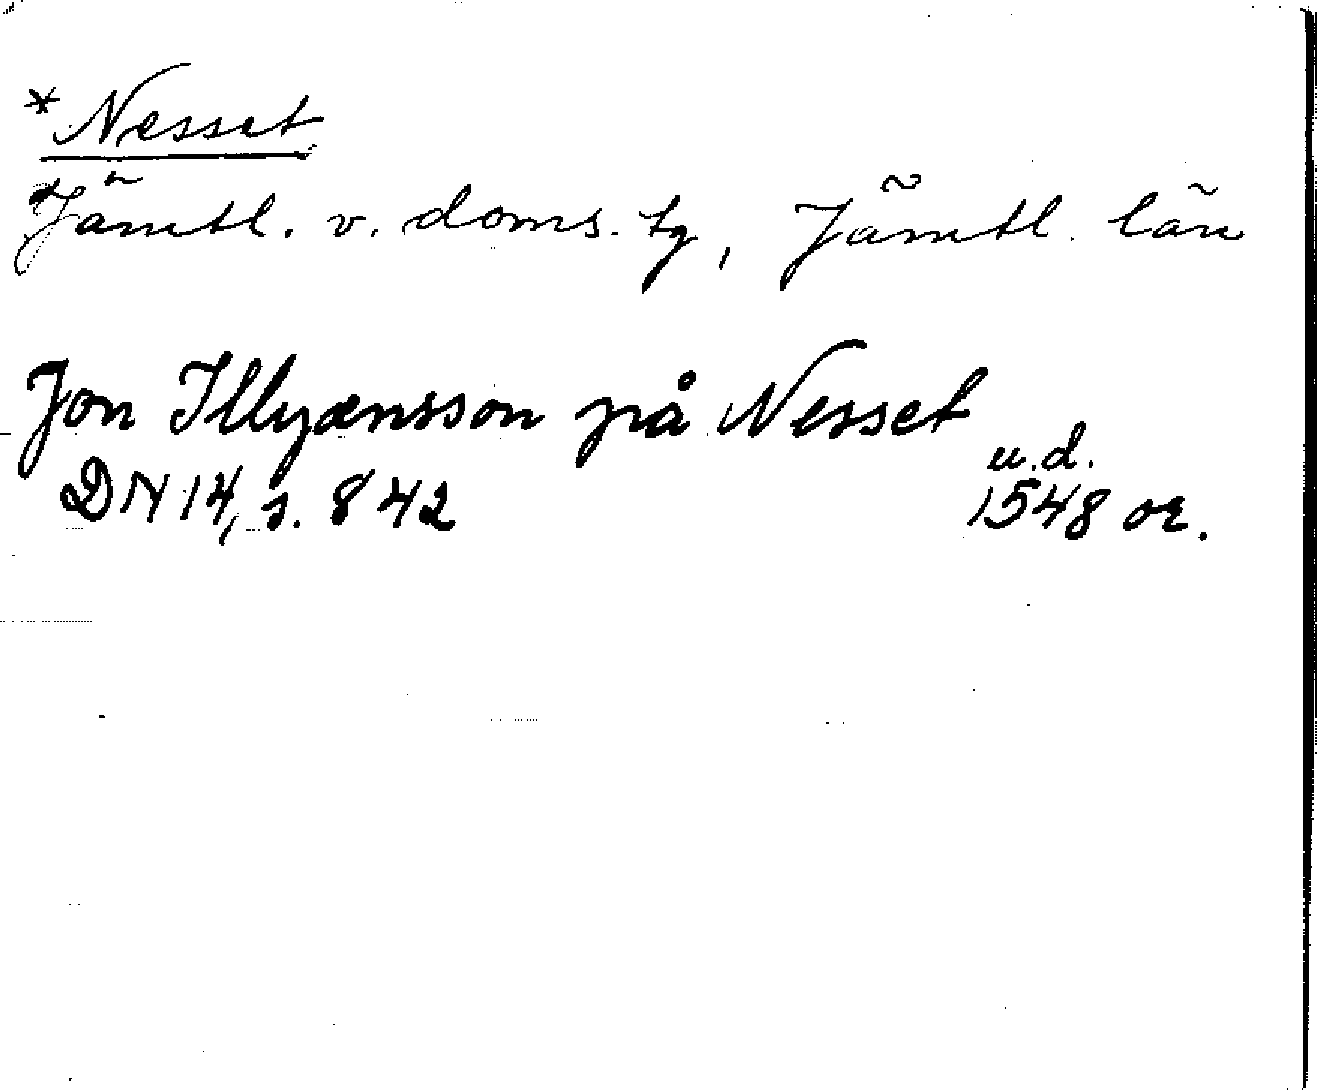 *Nesset
Jämtl. v. doms. tg, Jämtl. län
Jon Illyænsson på Nesset
u.d.
DN 14, s. 842 1548 or.